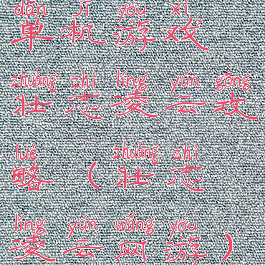 dān jī yóu xì
单机游戏
zhuàng zhì líng yún gōng
壮志凌云攻
lüè zhuàng zhì
略（壮志
líng yún wǎng yóu
凌云网游）